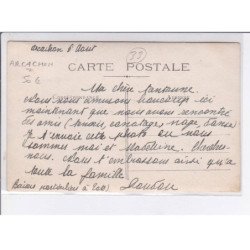 Arcachon 8 Aout
33
ARCACHON
CARTE POSTALE
50 €
Ma chère
Nous nous amusons beaucoup ici
maintenant que nous avons rencontré
des amis (tennis, canotage, nage, danse
Je t'envoie cette photo où nous
sommes moi et Madeleine.
nous. Nous t'embrassons ainsi que
toute la famille
Baisers